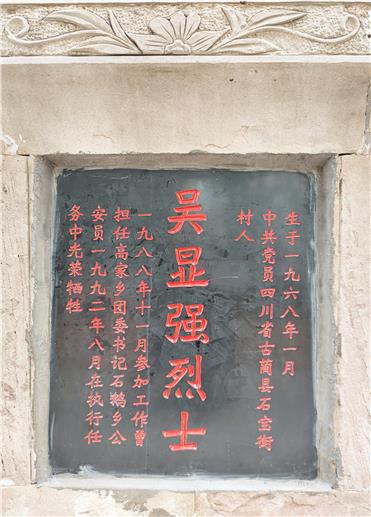 生于一九六八年一月
中共党员四川省古蔺县石宝街
村人
吴显强烈士
一九八八年十一月参加工作曾
担任高家乡团委书记石鹅乡公
安员一九九二年八月在执行任
务中光荣牺牲